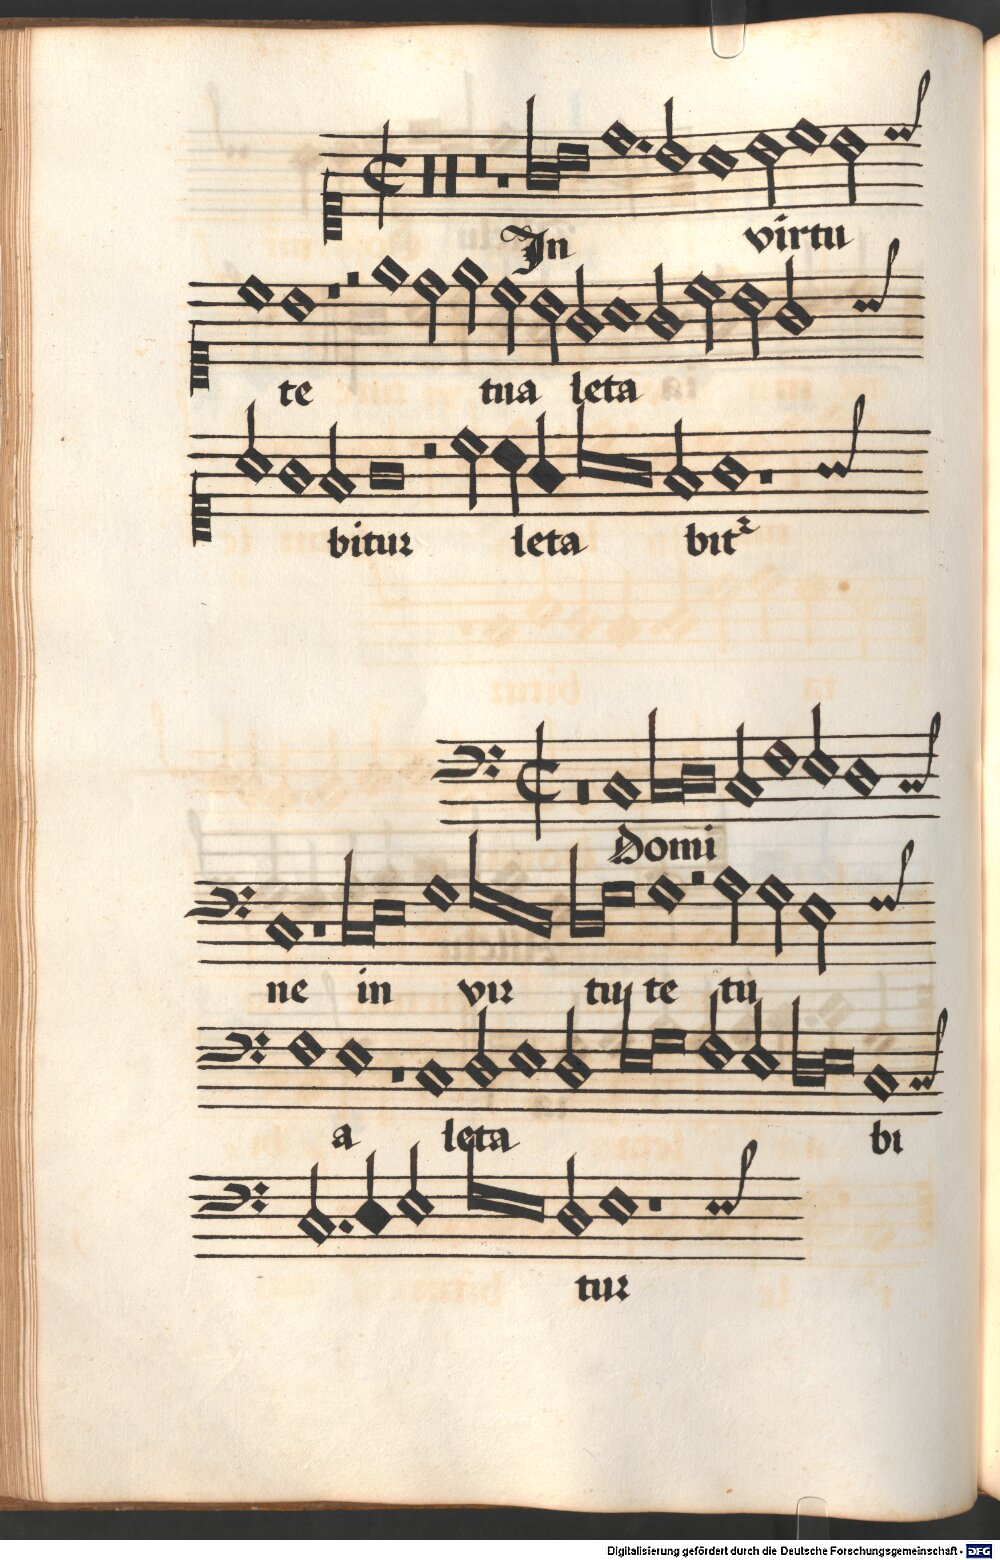 In virtu
te tua leta
bitur leta bitᷣ
Domi
ne in vir tu te tu
a leta bi
tur
Digitalisierung gefördert durch die Deutsche Forschungsgemeinschaft - DFG